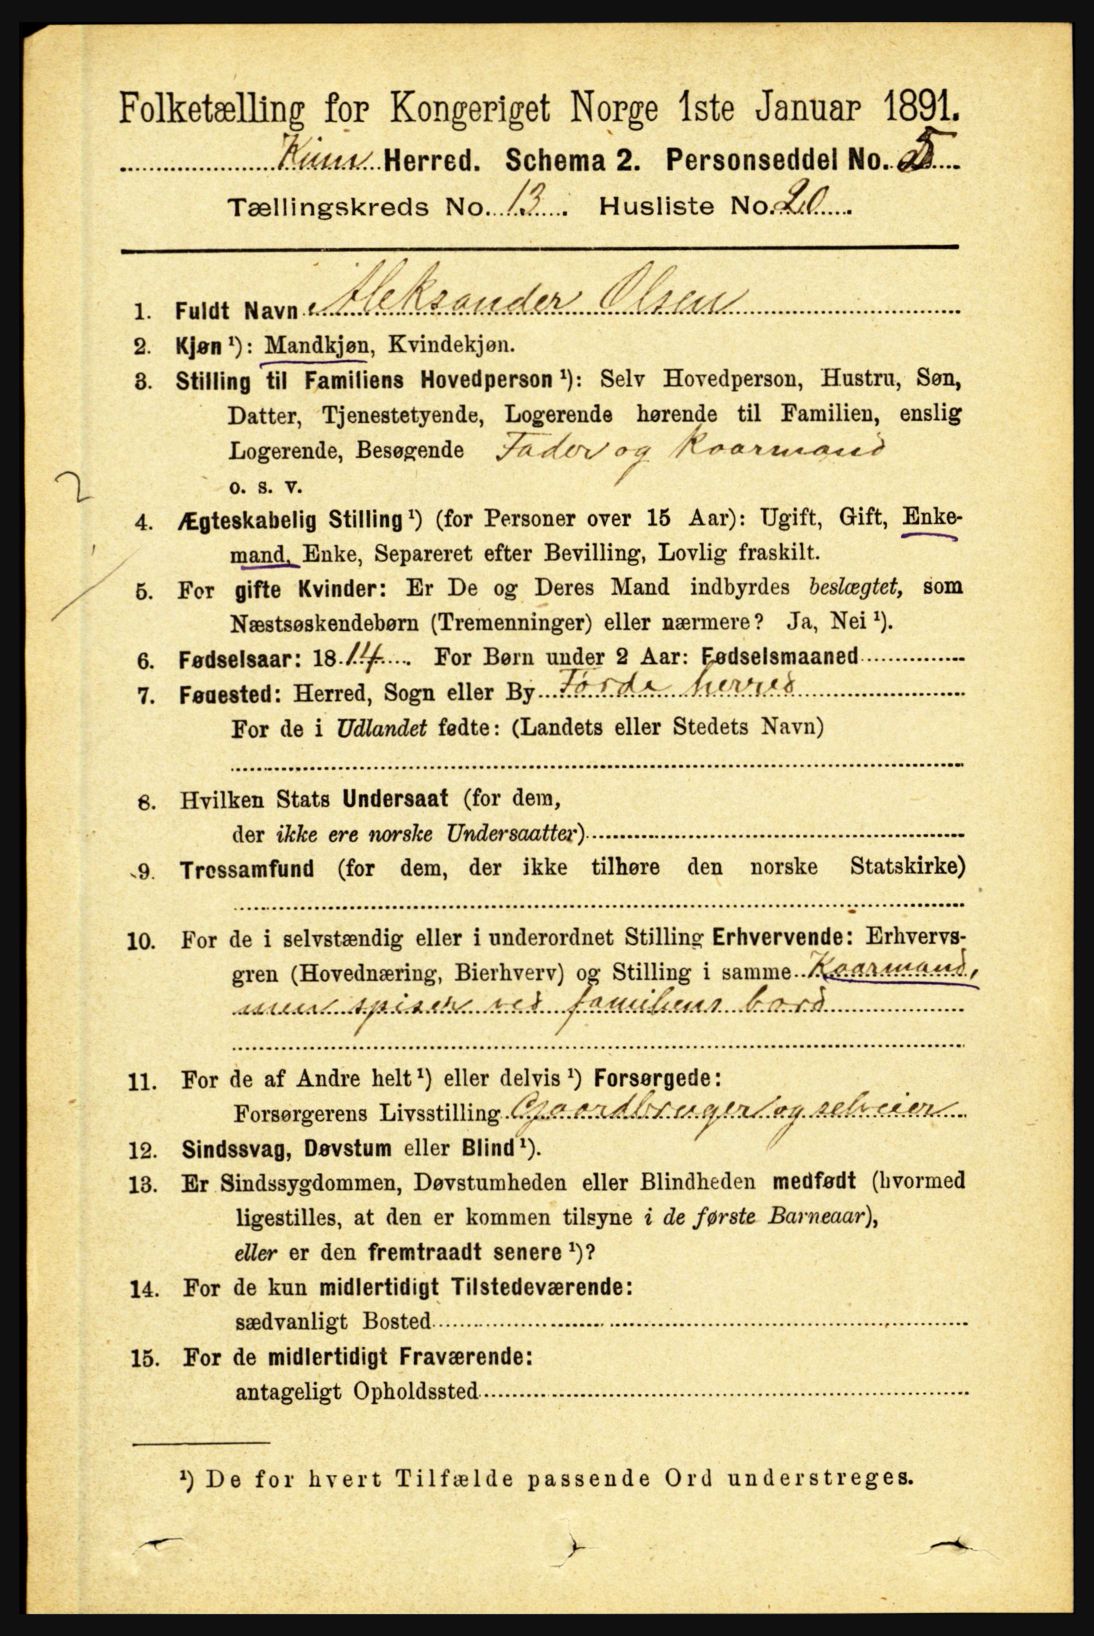 Folketælling for Kongeriget Norge 1ste Januar 1891.
Kinn Herred. Schema 2. Personseddel No. 5
Tællingskreds No. 13. Husliste No. 20.
1. Fuldt Navn Aleksander Olsen
2. Kjøn ¹): Mandkjøn, Kvindekjøn.
3. Stilling til Familiens Hovedperson ¹): Selv Hovedperson, Hustru, Søn,
Datter, Tjenestetyende, Logerende hørende til Familien, enslig
Logerende, Besøgende Fader og Kaarmand
o. s. v.
2
4. Ægteskabelig Stilling ¹) (for Personer over 15 Aar): Ugift, Gift, Enke-
mand, Enke, Separeret efter Bevilling, Lovlig fraskilt.
5. For gifte Kvinder: Er De og Deres Mand indbyrdes beslægtet, som
Næstsøskendebørn (Tremenninger) eller nærmere? Ja, Nei ¹).
6. Fødselsaar: 1814. For Børn under 2 Aar: Fødselsmaaned
7. Føuested: Herred, Sogn eller By Førde herred
For de i Udlandet fødte: (Landets eller Stedets Navn)
8. Hvilken Stats Undersaat (for dem,
der ikke ere norske Undersaatter)
9. Trossamfund (for dem, der ikke tilhøre den norske Statskirke)
10. For de i selvstændig eller i underordnet Stilling Erhvervende: Erhvervs-
gren (Hovednæring, Bierhverv) og Stilling i samme Kaarmand,
men spiser ved familiens bord
11. For de af Andre helt ¹) eller delvis ¹) Forsørgede:
Forsørgerens Livsstilling Gaardbruger og selveier
12. Sindssvag, Døvstum eller Blind ¹).
13. Er Sindssygdommen, Døvstumheden eller Blindheden medfødt (hvormed
ligestilles, at den er kommen tilsyne i de første Barneaar),
eller er den fremtraadt senere ¹)?
14. For de kun midlertidigt Tilstedeværende:
sædvanligt Bosted
15. For de midlertidigt Fraværende:
antageligt Opholdssted
¹) De for hvert Tilfælde passende Ord understreges.